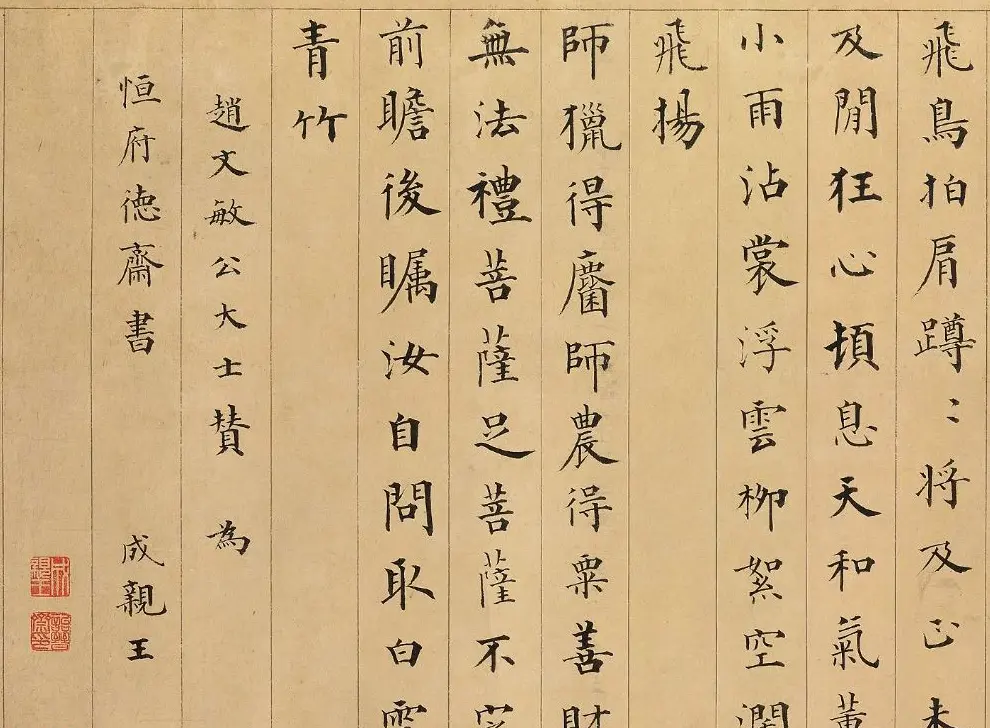 飛鳥拍肩蹲〻将及正
及閒狂心頓息天和氣
小雨沾裳浮雲柳絮空
飛揚
師獵得麕師農得粟善財
無法禮菩薩足菩薩不
前瞻後矚汝自問取白雲
青竹
趙文敏公大士賛 為
恒府德齋書 成親王